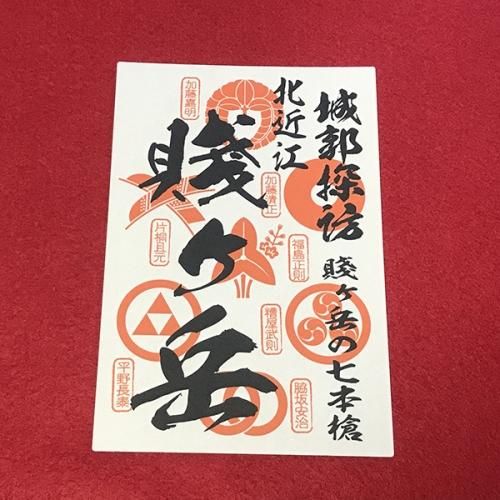 城郭探訪
賤ヶ岳の七本槍
北近江
賤ヶ岳
加藤嘉明
加藤清正
福島正則
片桐且元
糟屋武則
脇坂安治
平野長泰